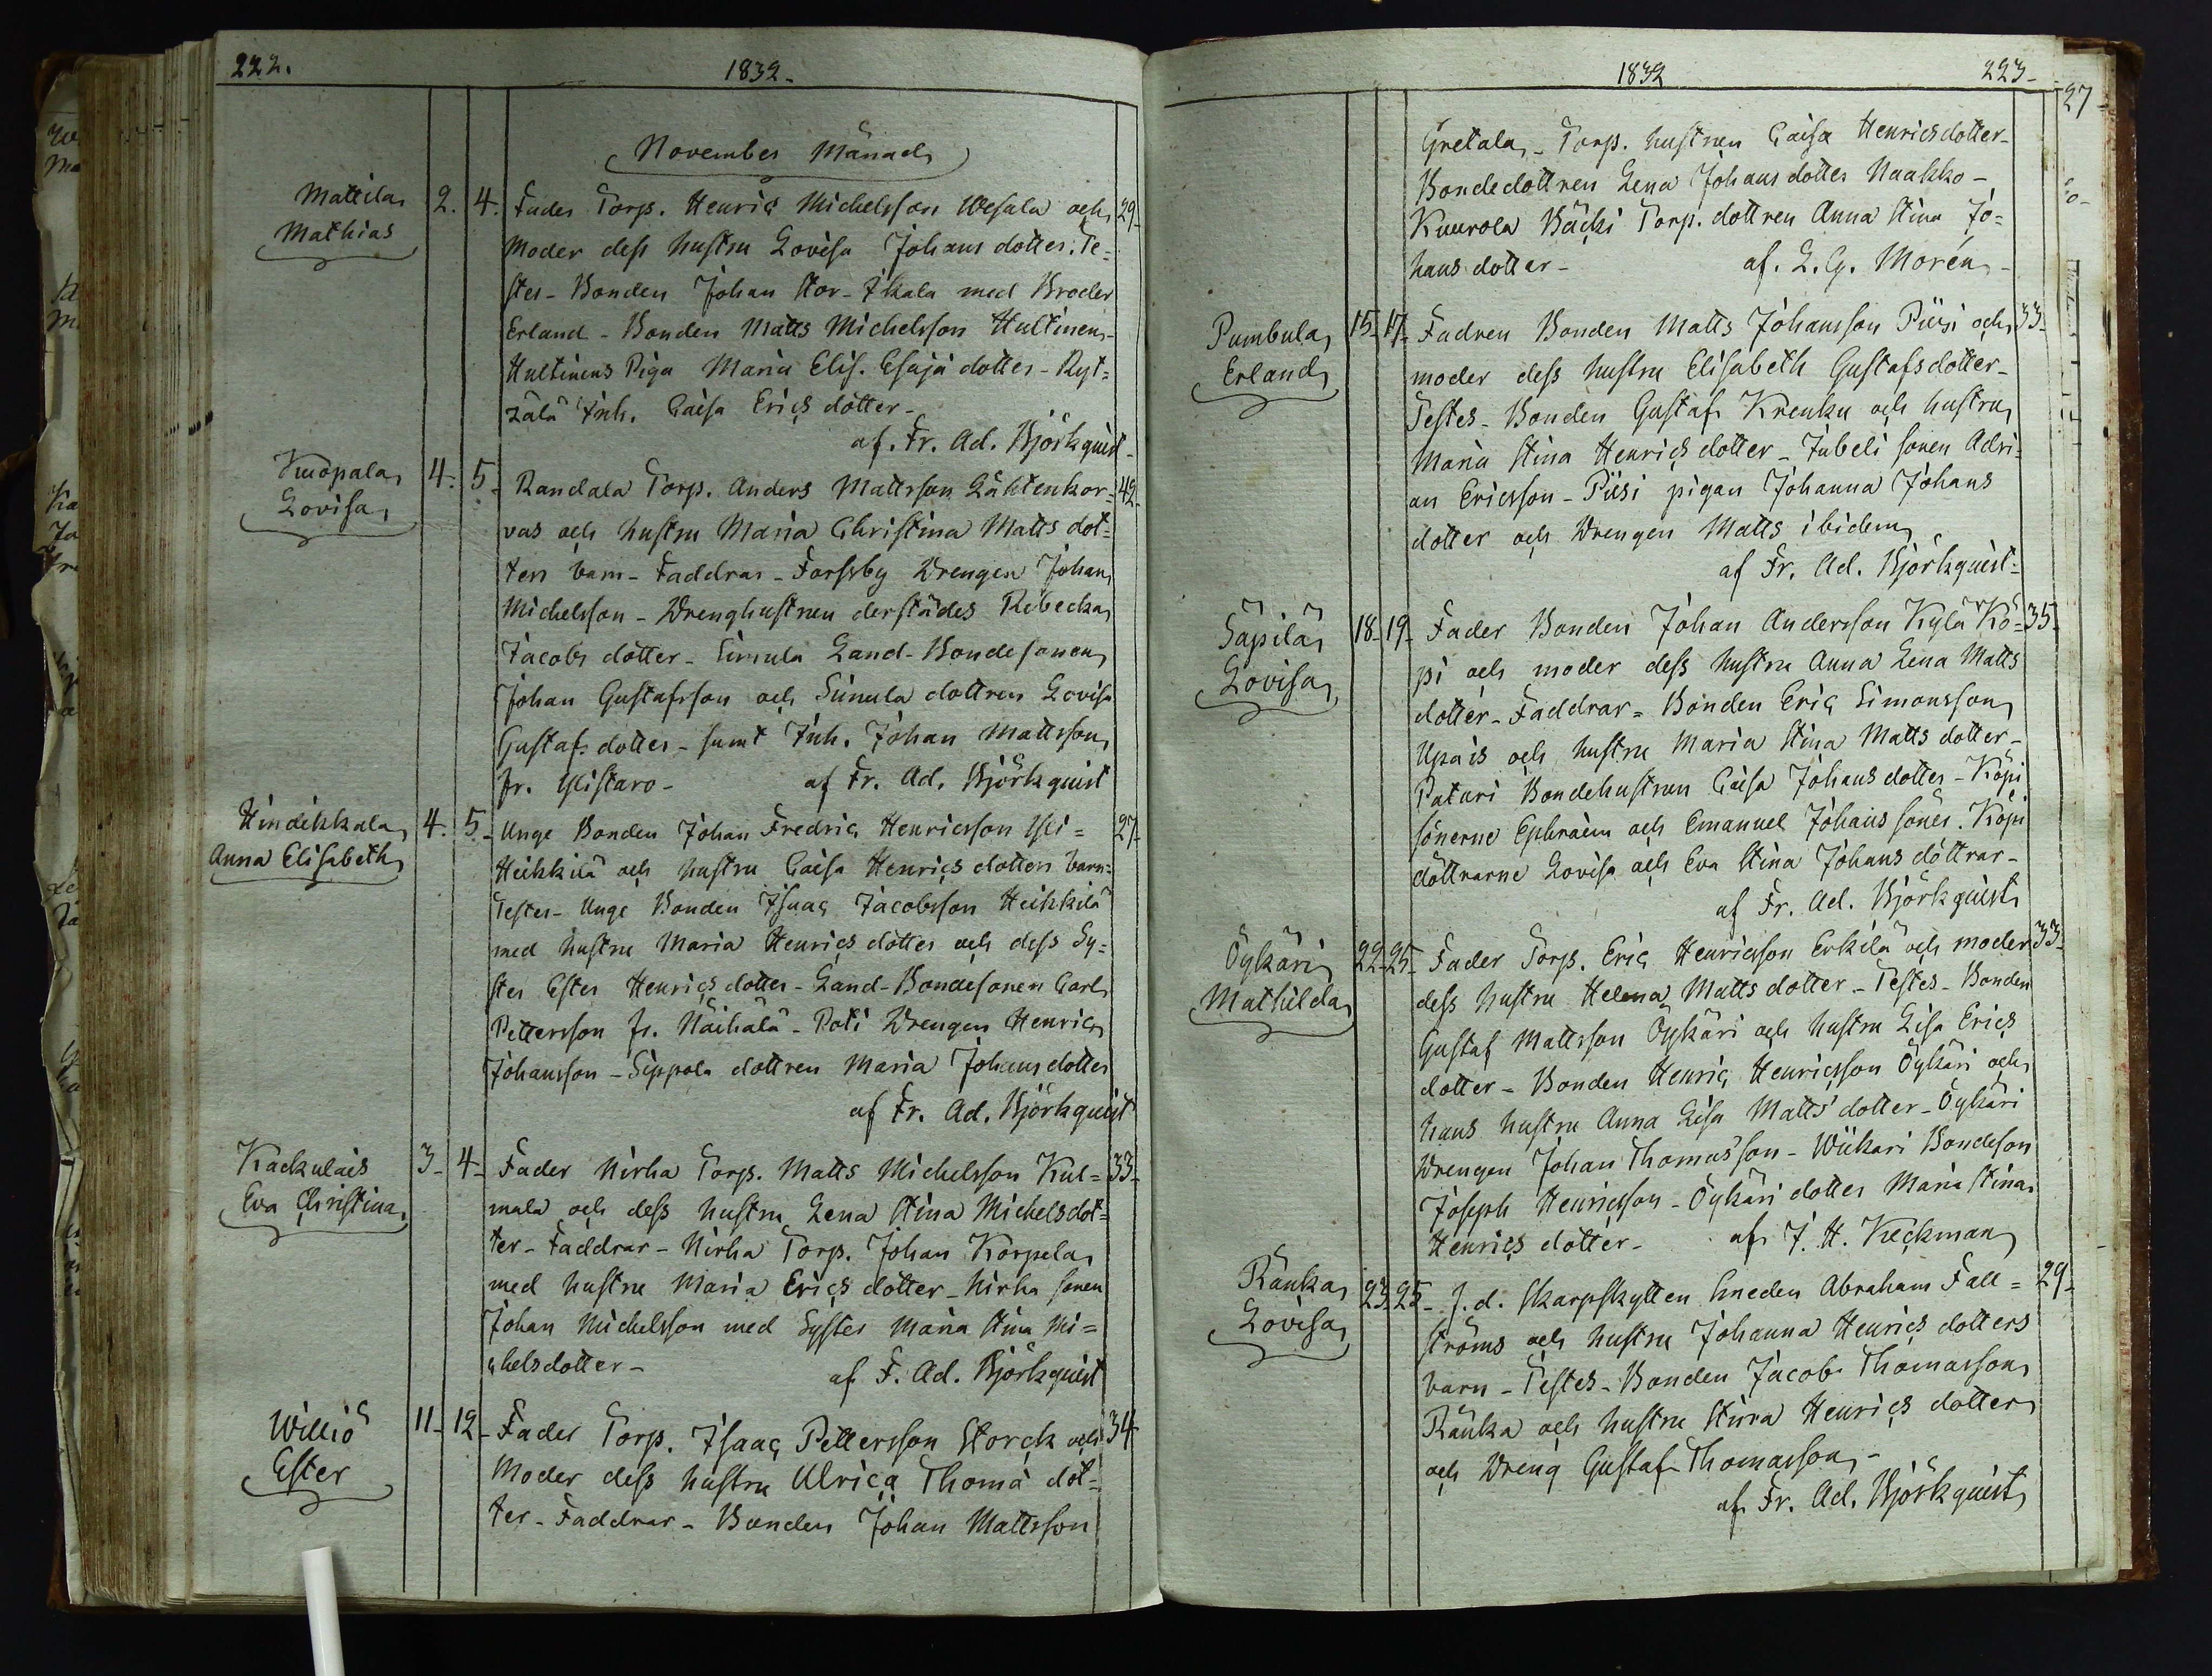 222.
1832.
November Månad
Mattila
Mathias
2. 4. Fader Torp. Henric Michelsson Wesala och 29
Moder dess hustru Lovisa Johans dotter. Te=
stes - Bonden Johan Stor-Ikala med Broder
Erland - Bonden Matts Michelsson Hultinen -
Hultinens Piga Maria Elis. Esajæ dotter - Ryt=
zälä Inh. Caisa Erics dotter -
af. Fr. Ad. Björkquist
Knopala
Lovisa
4. 5. Randala Torp. Anders Mattsson Lähtenkor= 42
vas och hustru Maria Christina Matts dot=
ters barn - Faddrar - Forssby Drengen Johan
Michelsson - Drenghustrun derstädes Rebecka
Jacobs dotter - Simula Land-Bondesonen
Johan Gustafsson och Simula dottren Lovisa
Gustafs dotter - samt Inh. Johan Mattsson
fr. Ylistaro - af Fr. Ad. Björkquist
Hindikkala
Anna Elisabeth
4. 5. Unge Bonden Johan Fredric Henricsson Yli= 27
Heikkilä och hustru Caisa Henrics dotters barn=
Testes - Unge Bonden Isaac Jacobsson Heikkilä
med hustru Maria Henrics dotter och dess Sy=
ster Ester Henrics dotter - Land-Bondesonen Carl
Pettersson fr. Näihälä - Poti Drengen Henric
Johansson - Sippola dottren Maria Johans dotter
af Fr. Ad. Björkquist
Kackulais
Eva Christina
3 - 4 - Fader Nirha Torp. Matts Michelsson Kul= 33
mala och dess hustru Lena Stina Michelsdot=
ter - Faddrar - Nirha Torp. Johan Korpela
med hustru Maria Erics dotter - Nirha sonen
Johan Michelsson med Syster Maria Stina Mi=
chelsdotter - af F. Ad. Björkquist
Williö
Ester
11 - 12 - Fader Torp. Isaac Pettersson Storck och 34
Moder dess hustru Ulrica Thomæ dot=
ter - Faddrar - Bonden Johan Mattsson
1832
223
27
Gretala - Torp. hustrun Caisa Henricsdotter -
Bondedottren Lena Johans dotter Naakko -
Kuurola Bäcki Torp. dottren Anna Stina Jo=
hans dotter - af. L. G. Morén -
Pumbula
Erland
15 - 17 - Fadren Bonden Matts Johansson Piisi och 33
moder dess hustru Elisabeth Gustafsdotter -
Testes - Bonden Gustaf Krenku och hustru
Maria Stina Henrics dotter - Jubeli sonen Adri=
an Ericsson - Piisi pigan Johanna Johans
dotter och Drengen Matts ibidem
af Fr. Ad. Björkquist -
Säpilä
Lovisa
18 - 19 - Fader Bonden Johan Andersson Kylä Kö= 35
pi och moder dess hustru Anna Lena Matts
dotter - Faddrar - Bonden Eric Simonsson
Upais och hustru Maria Stina Matts dotter -
Patari Bondehustrun Caisa Johans dotter - Köpi
sönerne Ephraim och Emanuel Johans söner. Köpi
döttrarne Lovisa och Eva Stina Johans döttrar -
af Fr. Ad. Björkquist
Öykäri
Mathilda
22 - 25 - Fader Torp. Eric Henricsson Erkilä och moder 33
dess hustru Helena Matts dotter - Testes - Bonden
Gustaf Mattsson Öykäri och hustru Lisa Erics
dotter - Bonden Henric Henricsson Öykäri och
hans hustru Anna Lisa Matts dotter - Öykäri
Drengen Johan Thomasson - Wiikari Bondeson
Joseph Henricsson - Öykäri dotter Maria Stina
Henrics dotter - af J. H. Keckman
Ränka
Lovisa
23 - 25 - f. d. Skarpskytten Smeden Abraham Fall= 29
ströms och hustru Johanna Henrics dotters
barn - Testes - Bonden Jacob Thomasson
Ränka och hustru Stina Henrics dotter
och Dreng Gustaf Thomasson -
af Fr. Ad. Björkquist